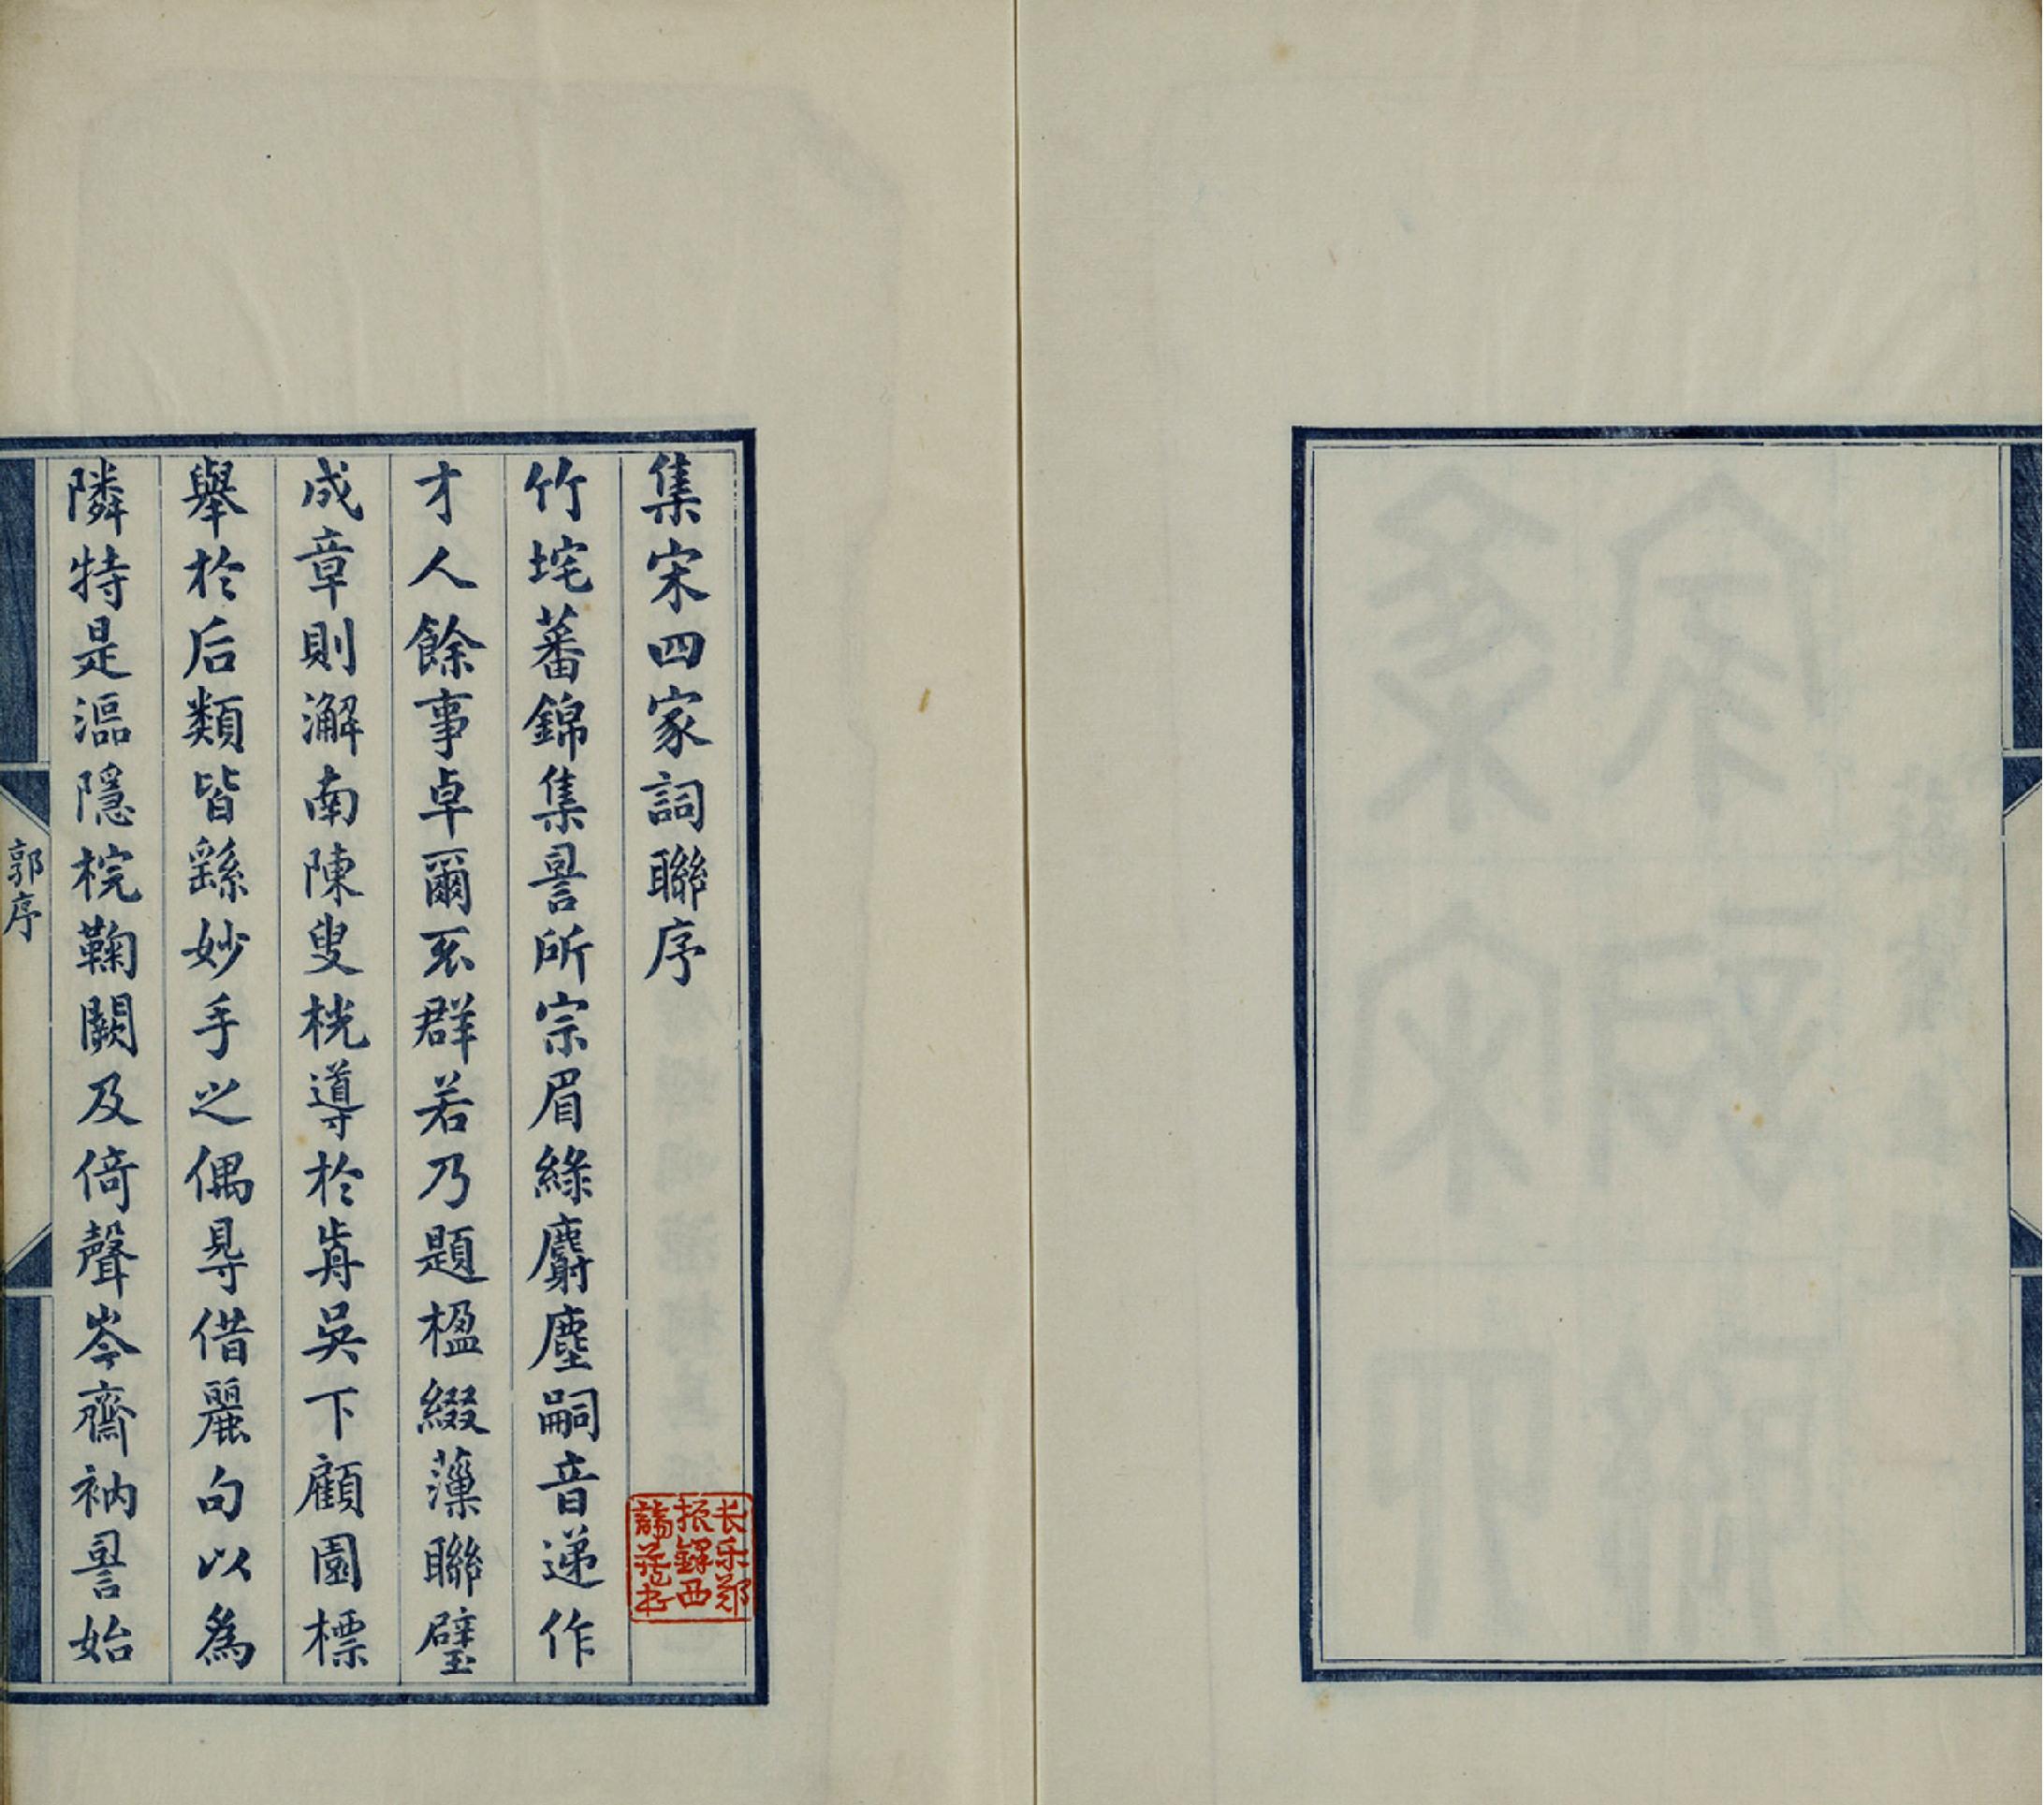 集宋四家詞聯序
竹垞蕃錦集䛐所宗眉綠麝塵嗣音递作
才人餘事卓爾不群若乃題楹綴薻聯璧
成章則澥南陳叟桄導於歬吳下顧園標
舉於后類皆繇妙手之偶㝵借麗句以為
隣特是漚隱梡鞠闕及倚聲岑齋衲䛐始
郭序
长乐郑
振鐸西
諦藏书